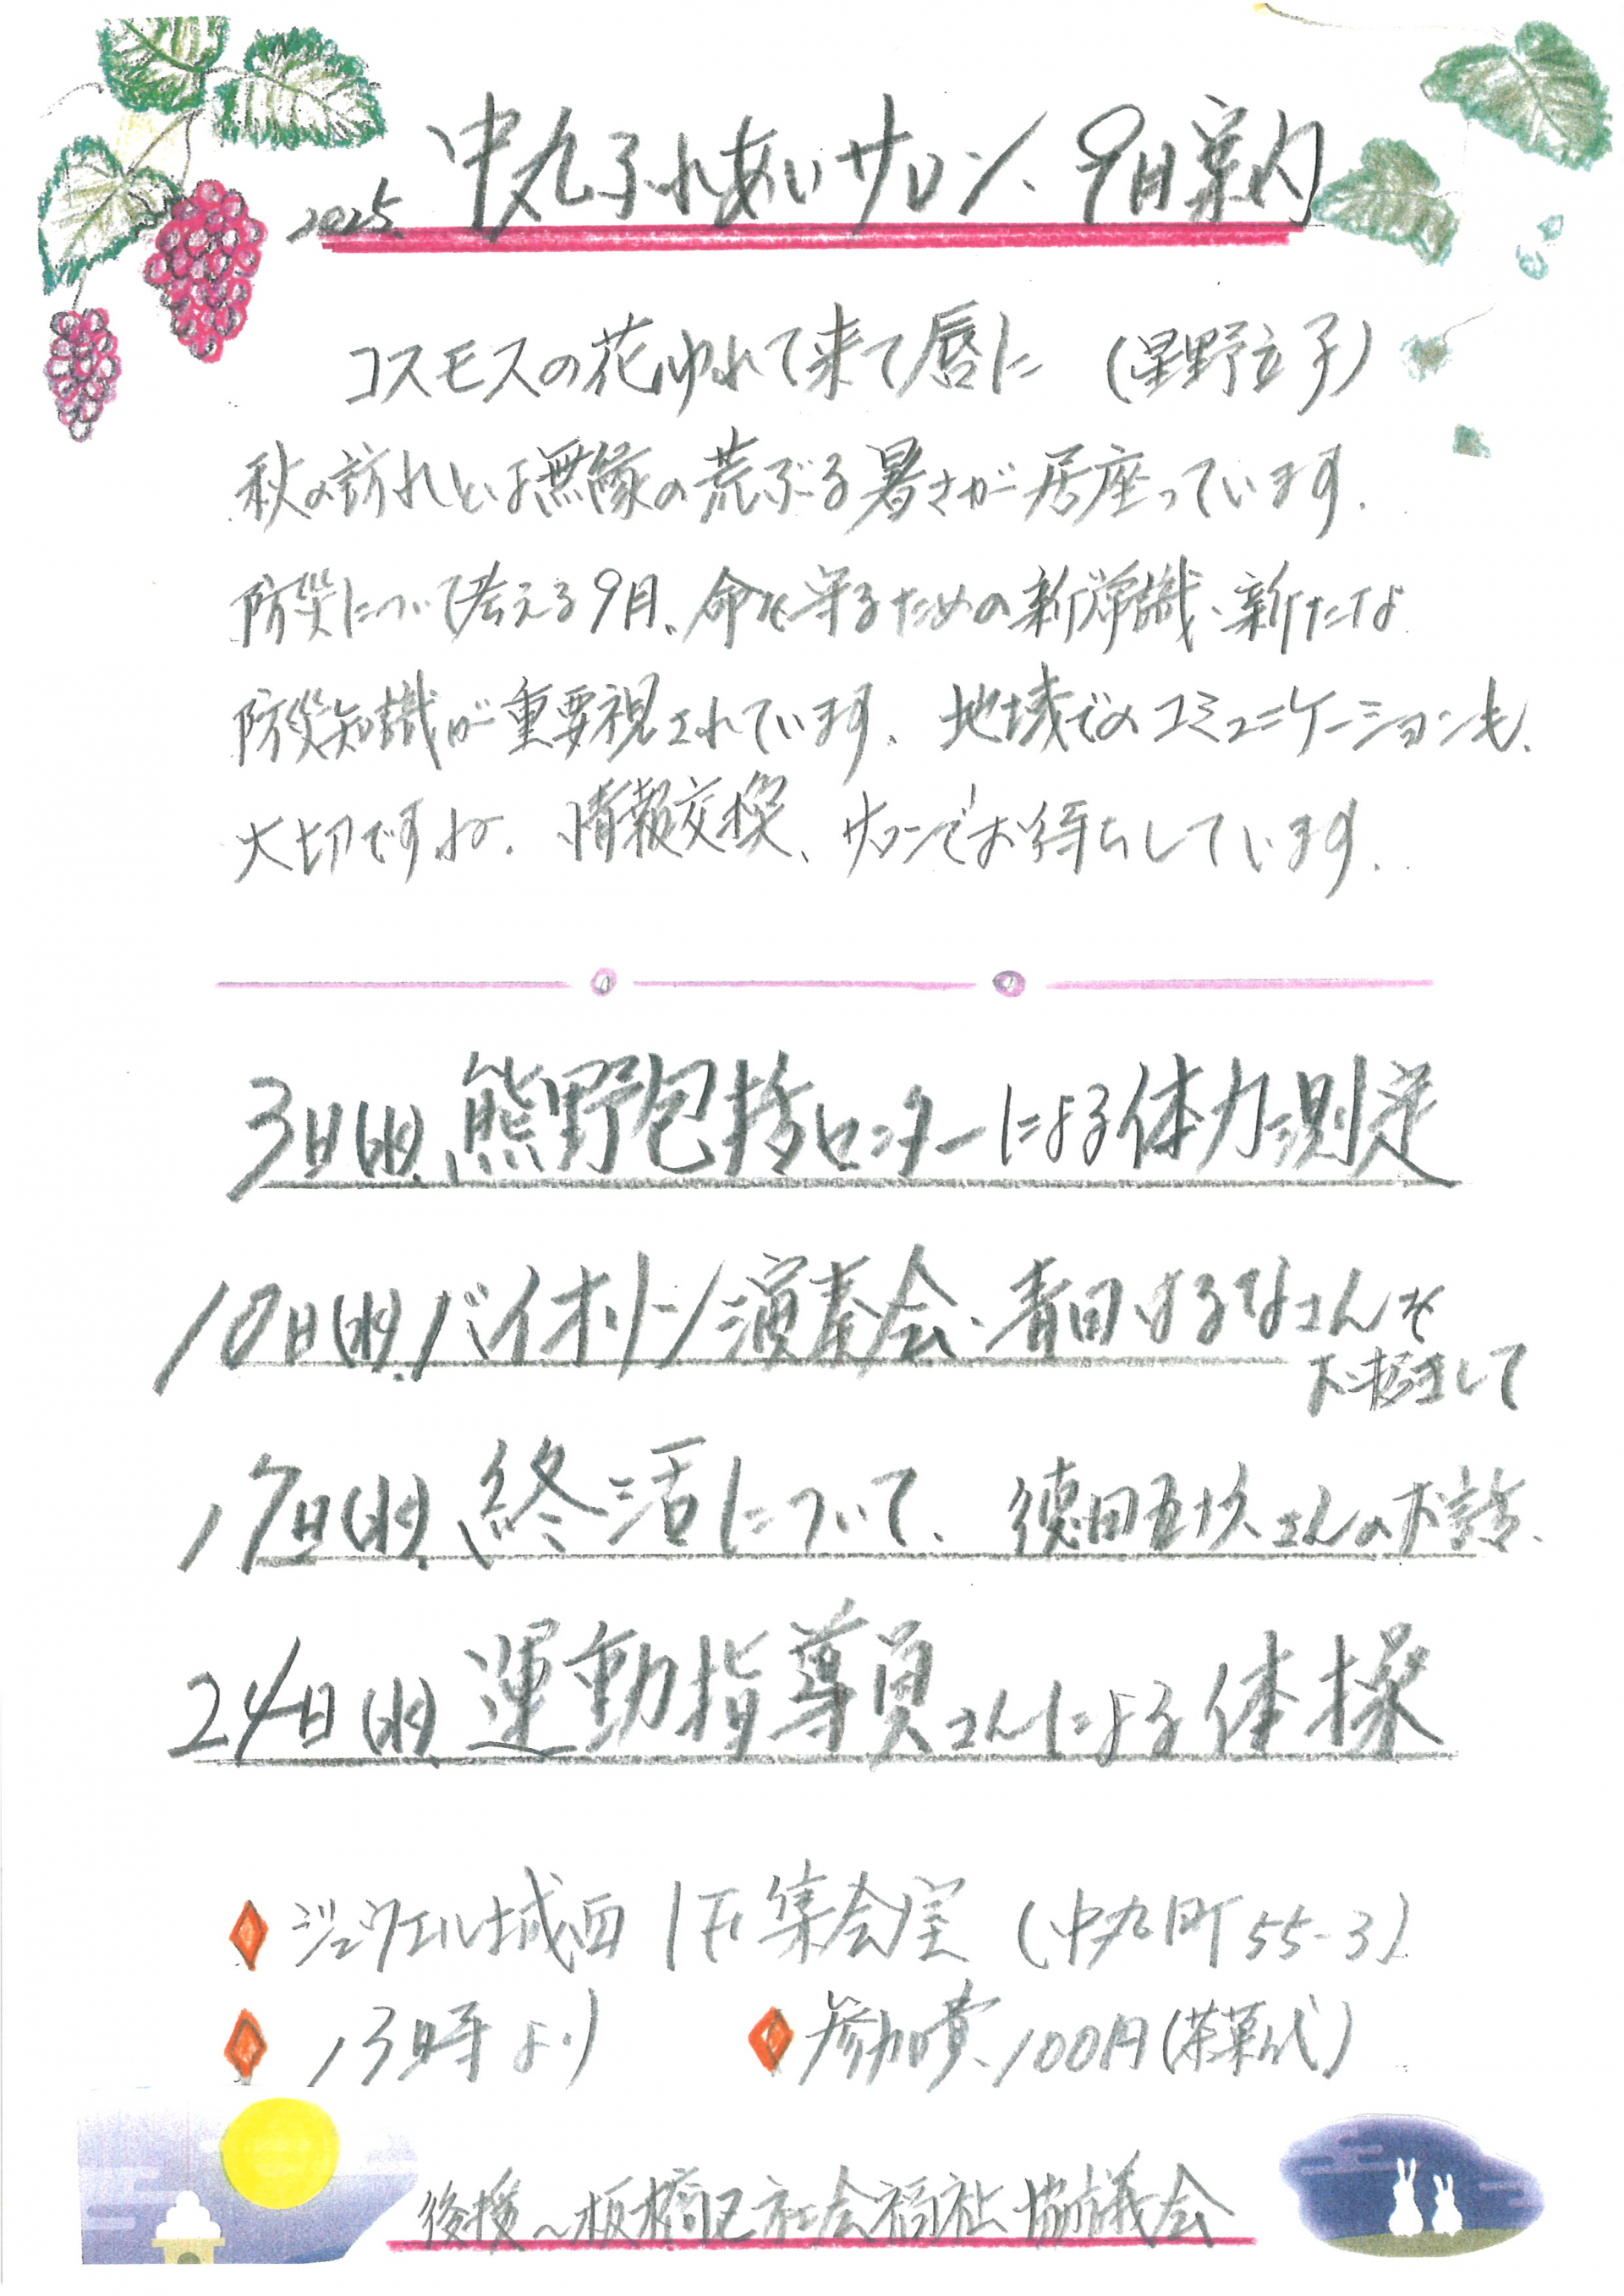 2025 中丸ふれあいサロン、9月案内
コスモスの花ゆれて来て唇に (星野立子)
秋の訪れとは無縁の荒ぶる暑さが居座っています.
防災について考える9月、命を守るための新常識、新たな
防災知識が重要視されています、地域でのコミュニケーションも、
大切ですね. 情報交換、サロンでお待ちしています.
3日(水)、熊野包括センターによる体力測定
10日(水)、バイオリン演奏会、青田はるなさんを
お招きして
17日(水)、終活について、 徳田五十久さんのお話、
24日(水) 運動指導員さんによる体操
ジュウエル城西 1F 集会室 (中丸町55-3)
13時より
参加費、100円(茶菓代)
後援〜板橋区社会福祉協議会